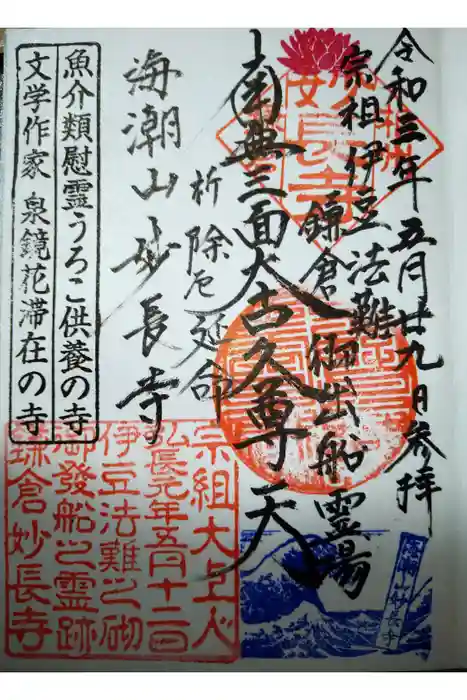 令和三年五月廿九日参拝
宗祖伊豆法難
鎌倉御出船霊場
南無三面大古久尊天
祈除厄延命
海潮山妙長寺
魚介類慰霊うろこ供養の寺
文学作家 泉鏡花滞在の寺
宗祖大上人
弘長元年五月十二日
伊豆法難之砌
御發船之霊跡
鎌倉妙長寺
海潮山妙長寺